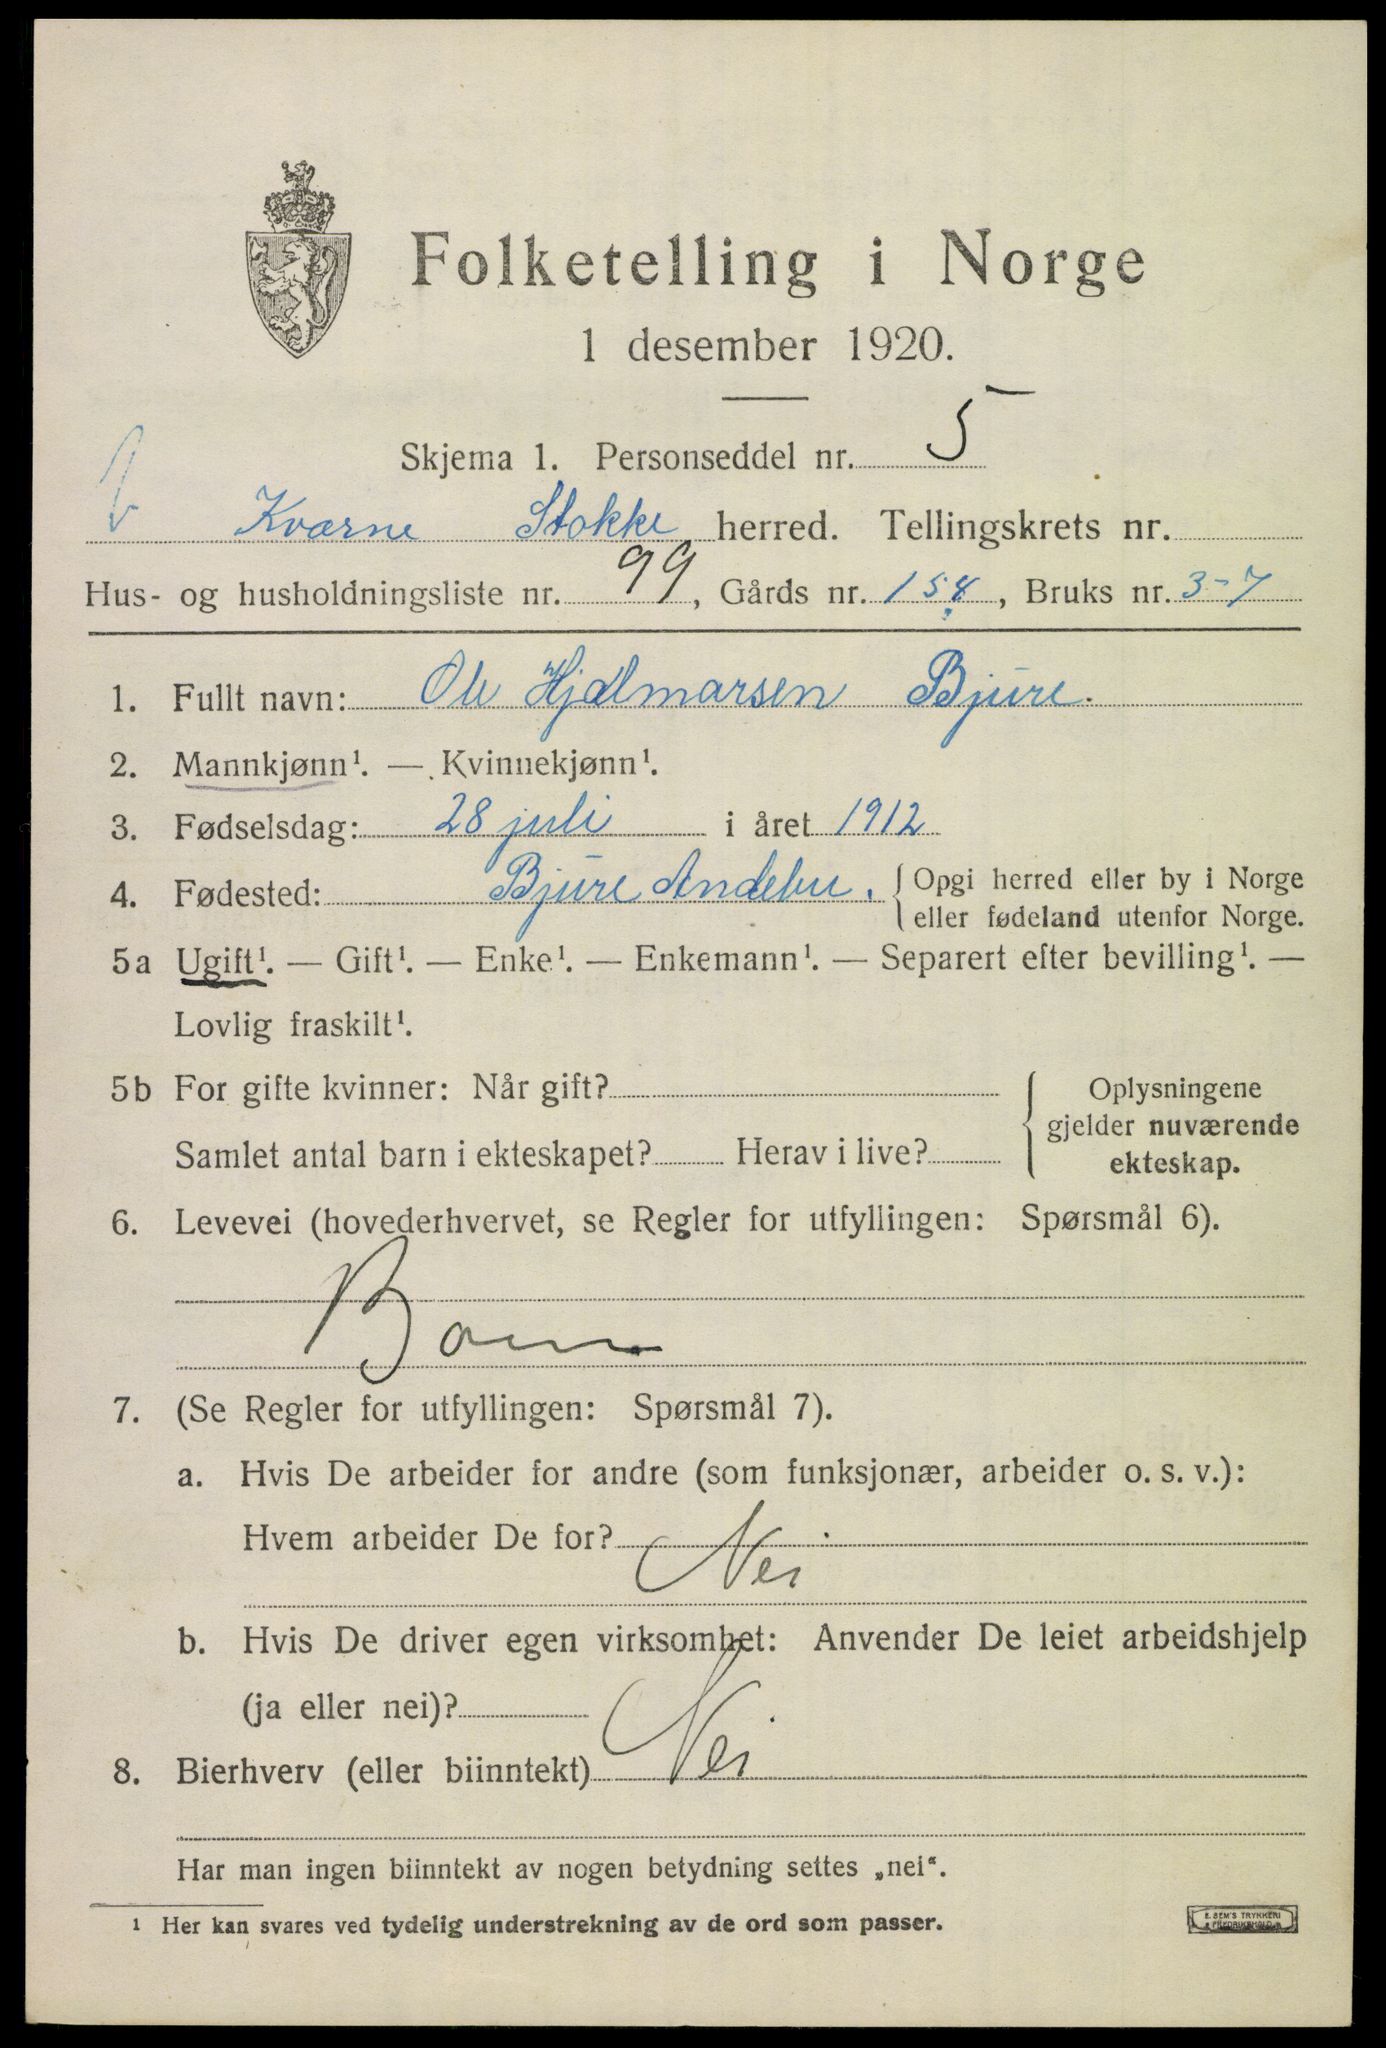 Folketelling i Norge
1 desember 1920.
Skjema 1. Personseddel nr. 5
Kværne Stokke herred. Tellingskrets nr.
Hus- og husholdningsliste nr. 99, Gårds nr. 154, Bruks nr. 3-7
1. Fullt navn: Ole Hjalmarsen Bjure.
2. Mannkjønn¹. — Kvinnekjønn¹.
3. Fødselsdag: 28 juli i året 1912
4. Fødested: Bjure Andebu. { Opgi herred eller by i Norge
eller fødeland utenfor Norge.
5a Ugift¹. — Gift¹. — Enke¹. — Enkemann¹. — Separert efter bevilling¹. —
Lovlig fraskilt¹.
5b For gifte kvinner: Når gift?
Samlet antal barn i ekteskapet? Herav i live?
Oplysningene
gjelder nuværende
ekteskap.
6. Levevei (hovederhvervet, se Regler for utfyllingen: Spørsmål 6).
Barn
7. (Se Regler for utfyllingen: Spørsmål 7).
a. Hvis De arbeider for andre (som funksjonær, arbeider o. s. v.):
Hvem arbeider De for? Nei
b. Hvis De driver egen virksomhet: Anvender De leiet arbeidshjelp
(ja eller nei)?
8. Bierhverv (eller biinntekt) Nei
Har man ingen biinntekt av nogen betydning settes „nei“.
¹ Her kan svares ved tydelig understrekning av de ord som passer.
E. SEM'S TRYKKERI
FREDRIKSHALD